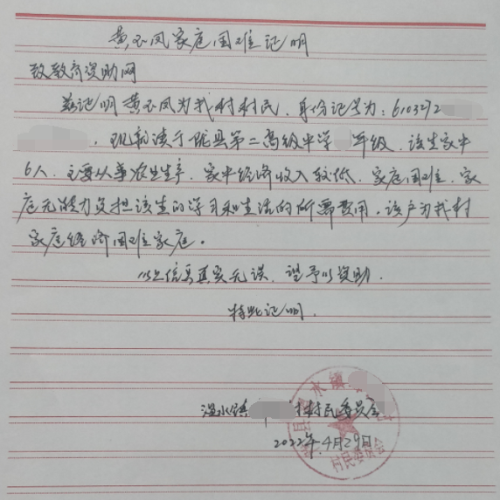 黄玉凤家庭困难证明
致教育资助网
兹证明黄玉凤为我村村民,身份证号为:6103272
,现就读于陇县第二高级中学 年级,该生家中
6人,主要从事农业生产,家中经济收入较低,家庭困难,家
庭无能力负担该生的学习和生活的所需费用。该户为我村
家庭经济困难家庭。
以上信息真实无误,望予以资助
特此证明.
温水镇 村村民委员会
2022年4月29日
县 水镇 村
村民委员会